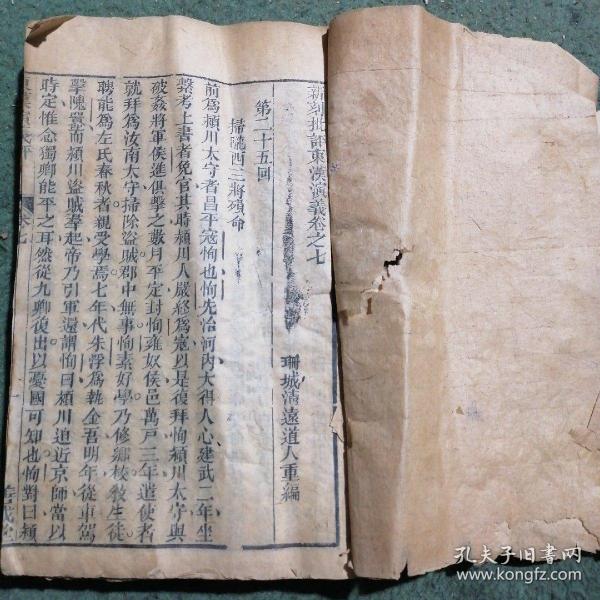 新刻批評東漢演義卷之七
珊城清遠道人重編
第二十五回
掃隴西三將殞命
前爲潁川太守者昌平寇恂也恂先治河內大得人心建武二年坐
繫考上書者免官其時潁川人嚴終爲寇以是復拜恂潁川太守與
破姦將軍侯進俱擊之數月平定封恂雍奴侯邑萬戸三年遣使者
就拜爲汝南太守掃除盜賊郡中無事恂素好學乃修鄉校敎生徒
聘能爲左氏春秋者親受學焉七年代朱浮爲執金吾明年從車駕
擊隗囂而潁川盜賊羣起帝乃引軍還謂恂曰潁川迫近京師當以
時定惟念獨卿能平之耳然從九卿復出以憂國可知也恂對曰潁
卷七
善成堂
孔夫子旧书网
www.kongfz.com